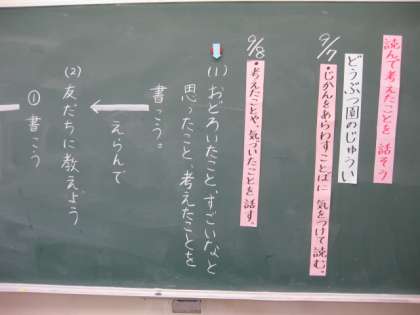 読んで考えたことを 話そう
どうぶつ園のじゅうい
9/7
・じかんをあらわすことばに 気をつけて読む。
9/8
・考えたことや、気づいたことを 話す。
(1) おどろいたこと、すごいなと
思ったこと、考えたことを
書こう。
えらんで
(2) 友だちに教えよう
① 書こう